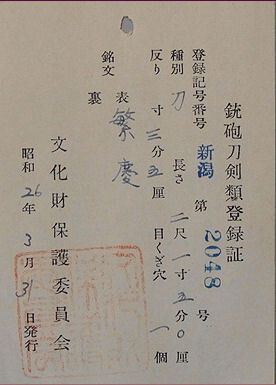 銃砲刀剣類登録証
登録記号番号 新潟 第 2048 号
種別 刀 長さ 二尺一寸五分0厘
反り 寸三分五厘 目くぎ穴 一個
銘文 表 繁慶
裏
文化財保護委員会
昭和26年3月31日発行